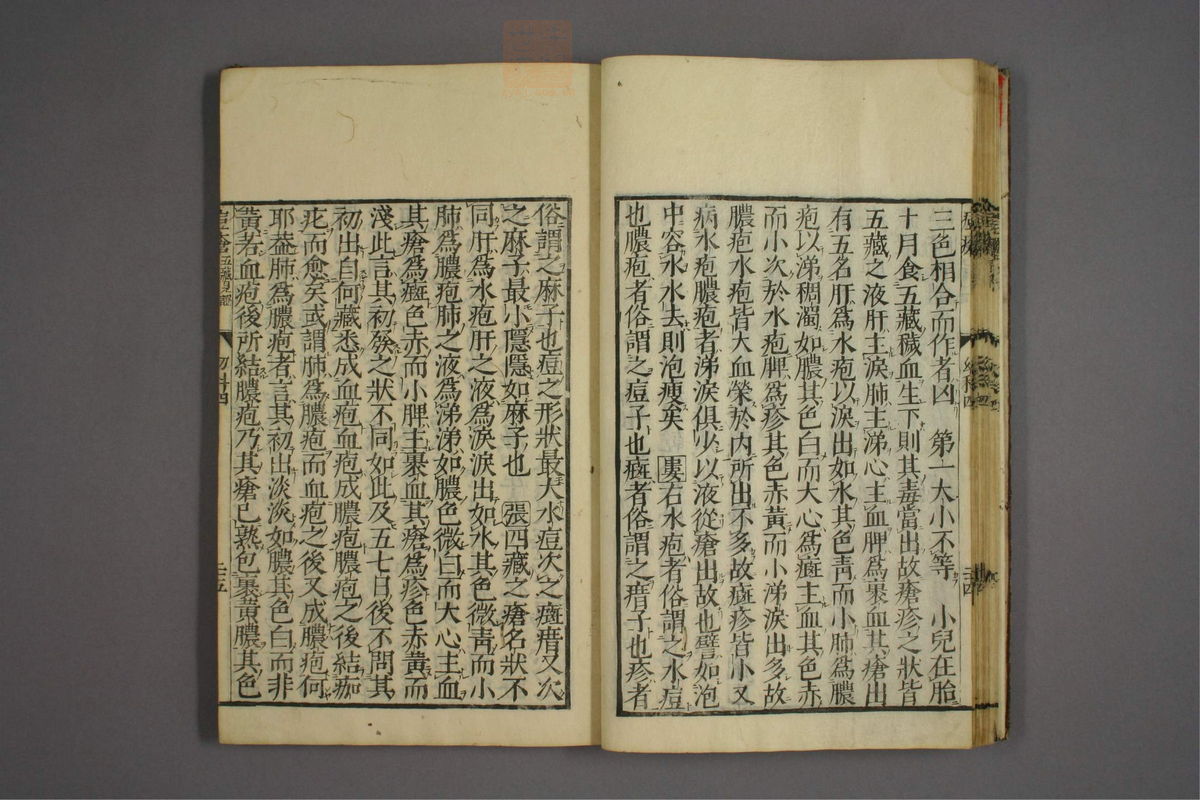 三色相合而作者凶　第一大小不等　小兒在胎
十月食五藏穢血生下則其毒當出故瘡疹之狀皆
五藏之液肝主淚肺主涕心主血脾爲裹血其瘡出
有五名肝爲水疱以淚出如水其色靑而小肺爲膿
疱以涕稠濁如膿其色白而大心爲癍主血其色赤
而小次於水疱脾爲疹其色赤黃而小涕淚出多故
膿疱水疱皆大血榮於內所出不多故癍疹皆小又
病水疱膿疱者涕淚俱少以液從瘡出故也譬如泡
中容水水去則泡瘦矣　婁右水疱者俗謂之水痘
也膿疱者俗謂之痘子也癍者俗謂之瘄子也疹者
俗謂之麻子也痘之形狀最大水痘次之癍瘄又次
之麻子最小隱隱如麻子也　張四藏之瘡名狀不
同肝爲水疱肝之液爲淚淚出如水其色微靑而小
肺爲膿疱肺之液爲涕涕如膿色微白而大心主血
其瘡爲癍色赤而小脾主裹血其瘡爲疹色赤黃而
淺此言其初發之狀不同如此及五七日後不問其
初出自何藏悉成血疱血疱成膿疱膿疱之後結痂
疕而愈矣或謂肺爲膿疱而血疱之後又成膿疱何
耶蓋肺爲膿疱者言其初出淡淡如膿其色白而非
黃者血疱後所結膿疱乃其瘡已熟包裹黃膿其色